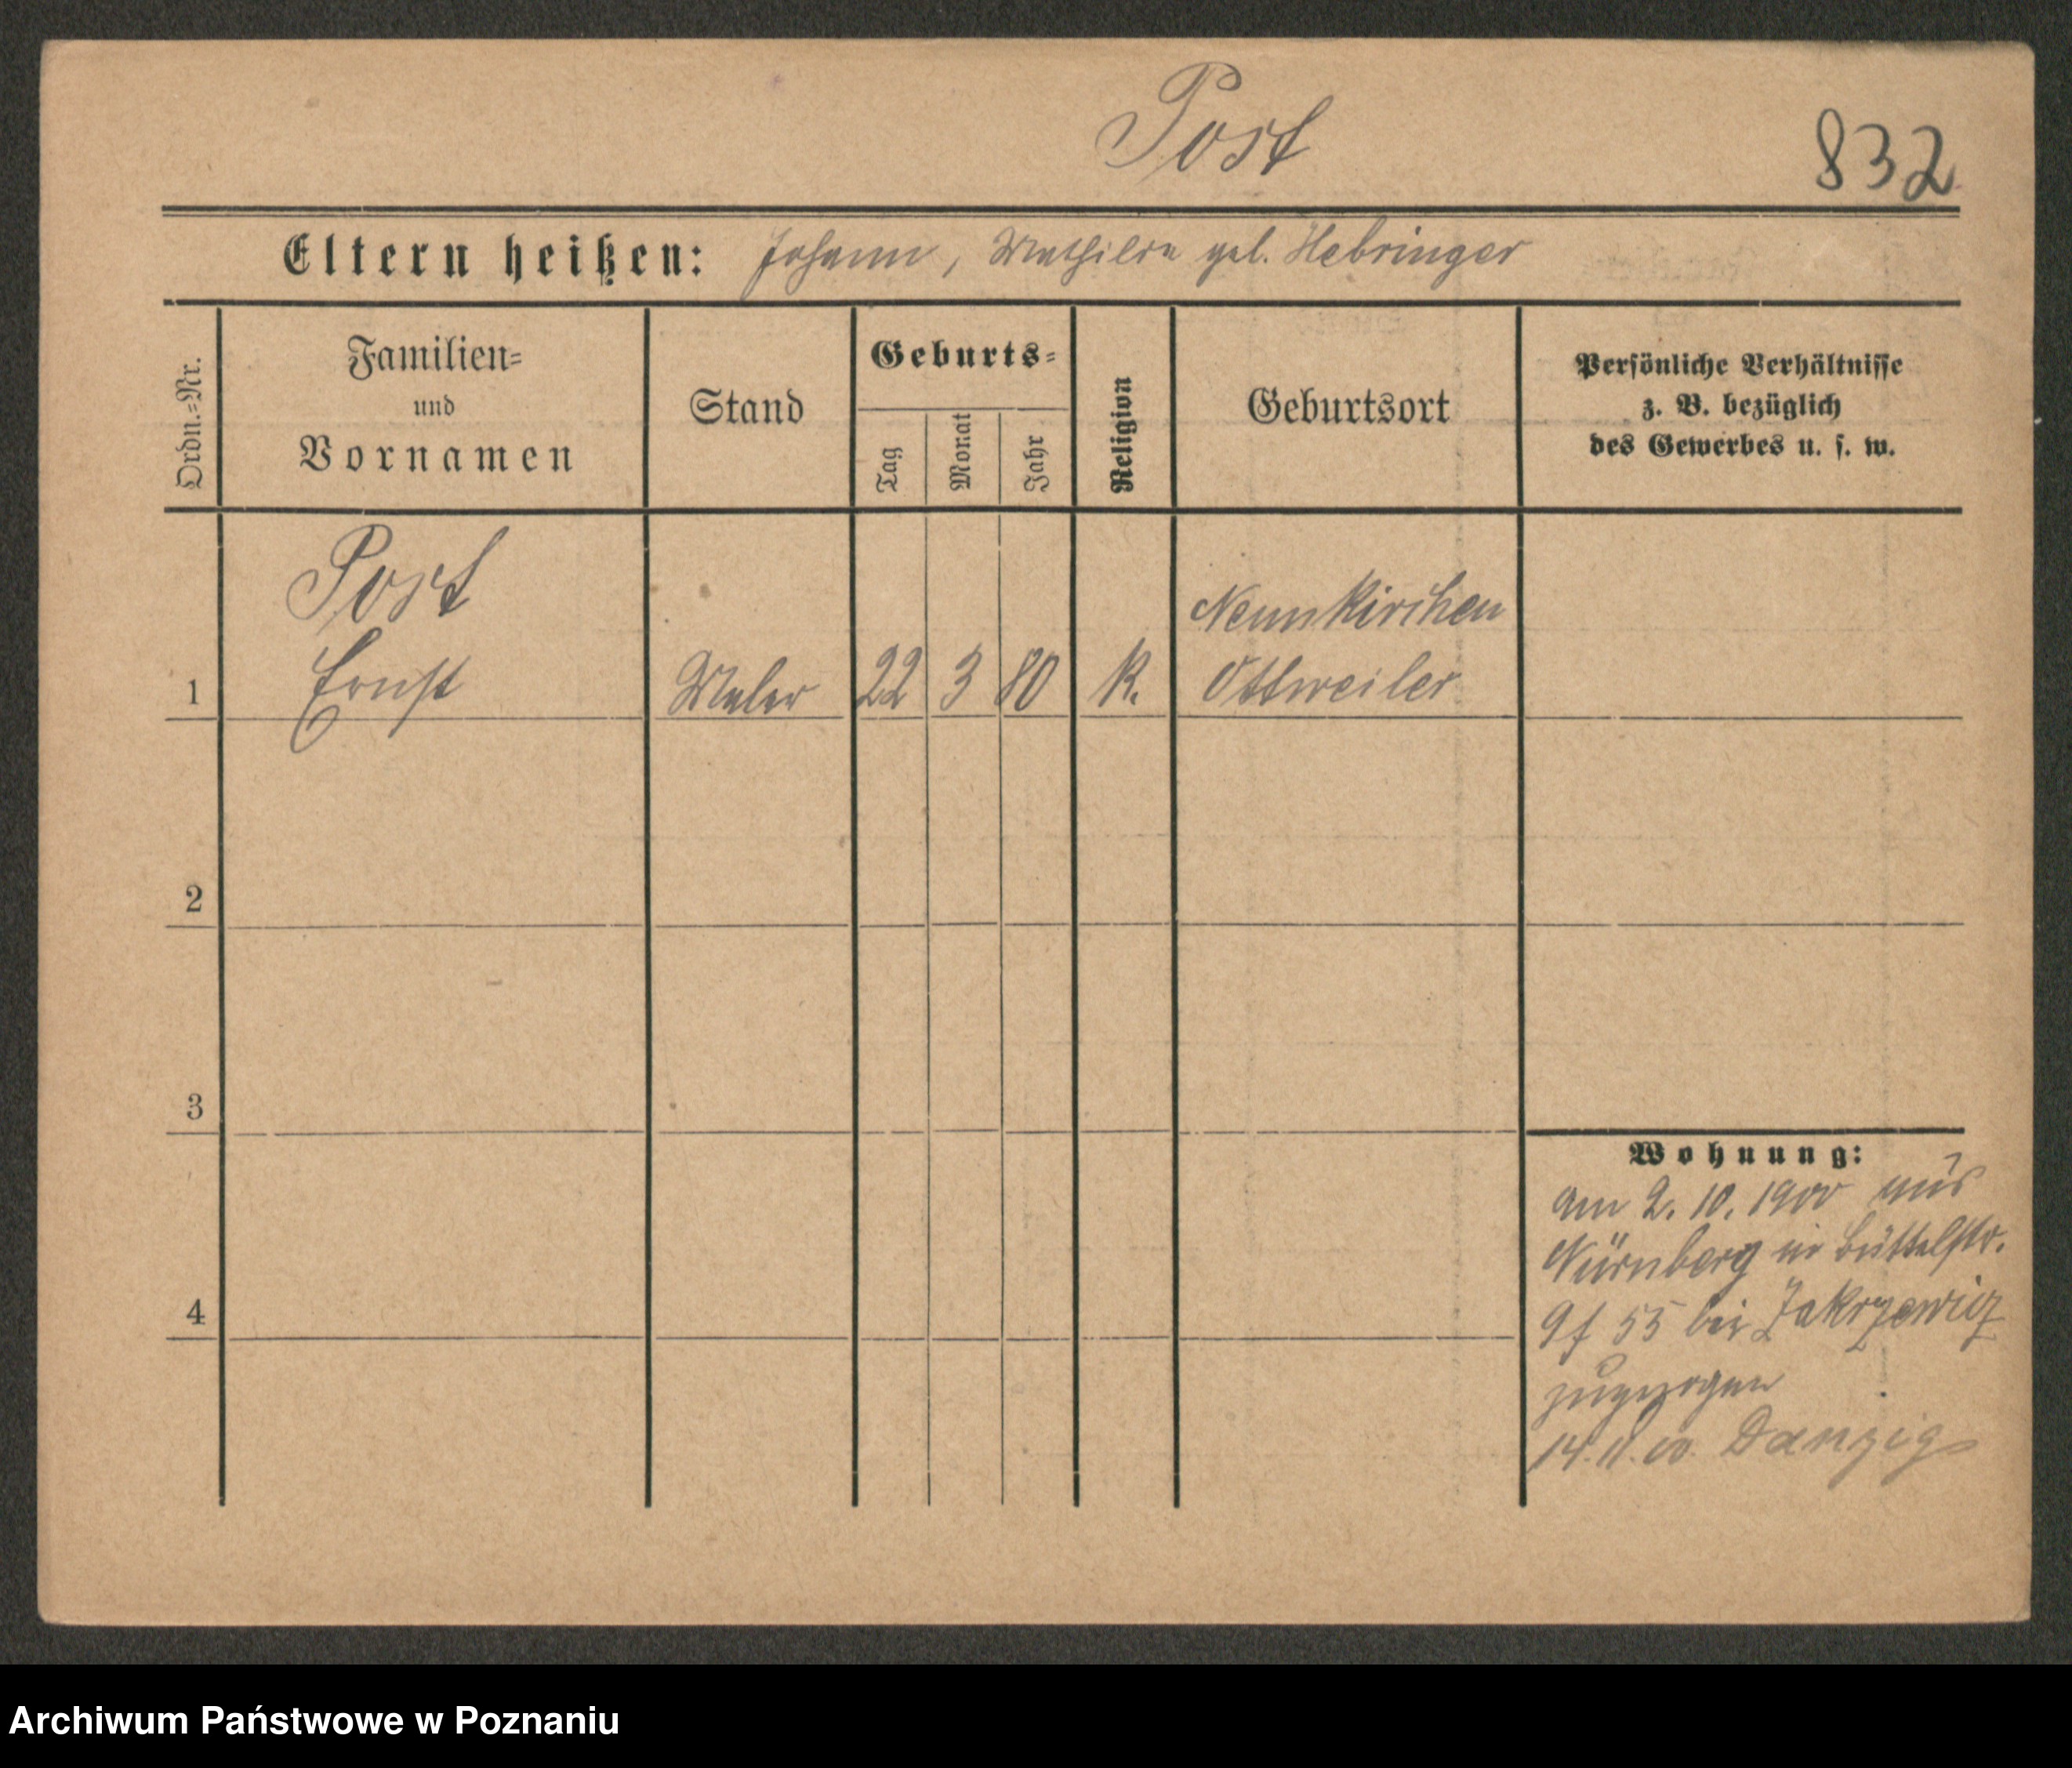 Post
832
Eltern heißen: Johann, Mathilde geb. Hebringer
Ordn.=Nr.
Familien=
und
Vornamen
Stand
Geburts=
Tag
Monat
Jahr
Religion
Geburtsort
Persönliche Verhältnisse
z. B. bezüglich
des Gewerbes u. s. w.
Post
Neunkirchen
1 Ernst Maler 22 3 80 K. Ottweiler
2
3
4
Wohnung:
am 2. 10. 1900 aus
Nürnberg in Büttelstr.
9 f 55 bei Zakrzewicz
zugezogen
14.11.00. Danzig
Archiwum Państwowe w Poznaniu